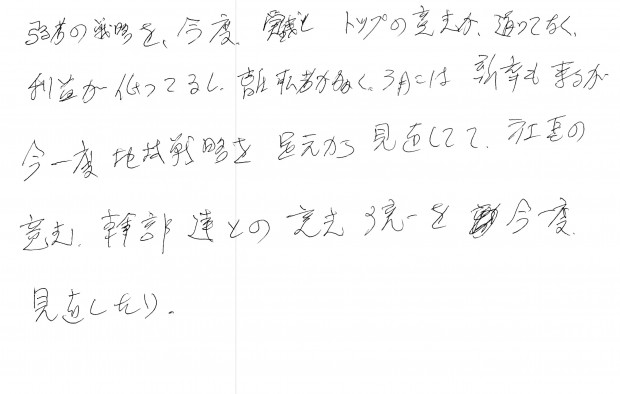 弱者の戦略を、今度、トップの意志が、通ってなく、
利益が低ってるし、転者が多く。3月には新卒も来るが
今一度地域戦略を足元から見直してて、社長の
意志、幹部達との意志統一を今一度、
見直したり。